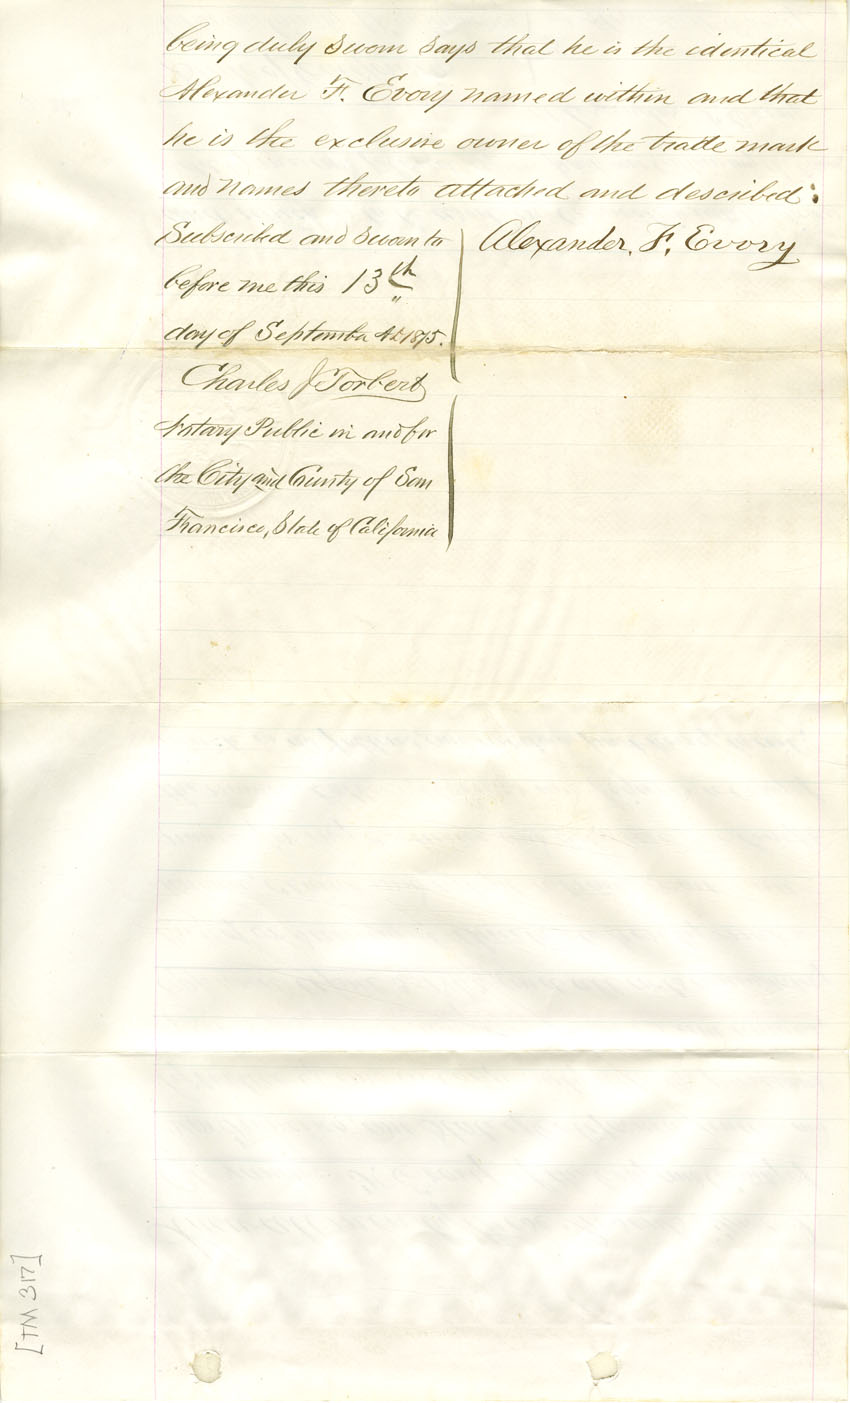 being duly sworn says that he is the identical
Alexander F. Evory named within and that
he is the exclusive owner of the trade mark
and names thereto attached and described:
Subscribed and sworn to
before me this 13th
day of September AD 1875.
Alexander. F. Evory
Charles J Torbert
Notary Public in and for
the City and County of San
Francisco, State of California
[TM 317]